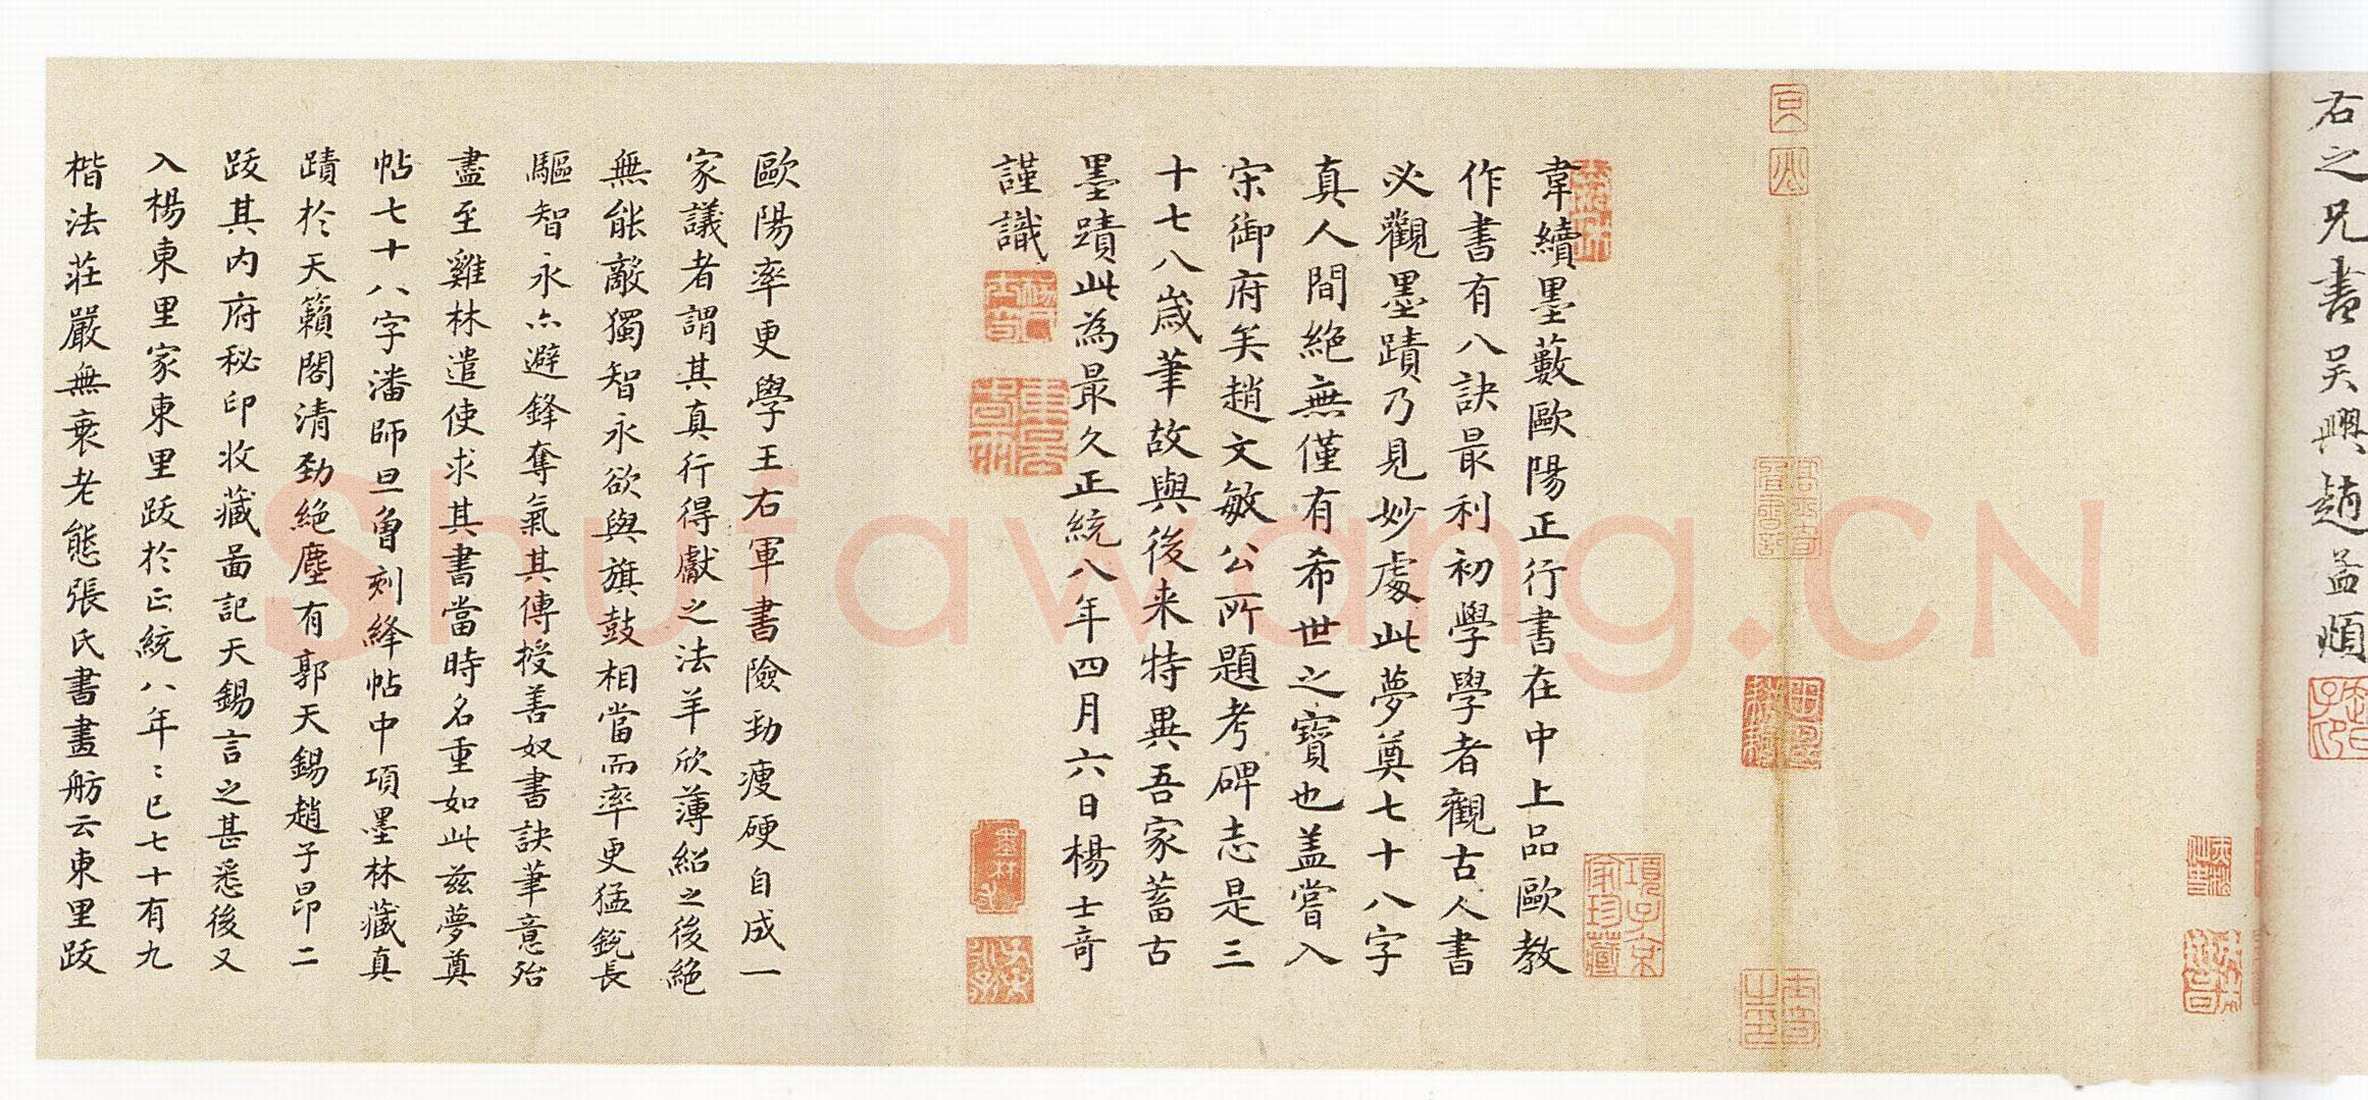 右之兄書吴興趙孟頫
韋續墨藪歐陽正行書在中上品歐教
作書有八訣最利初學學者觀古人書
必觀墨蹟乃見妙處此夢奠七十八字
真人間絶無僅有希世之寶也盖嘗入
宋御府矣趙文敏公所題考碑志是三
十七八歲筆故與後来特異吾家蓄古
墨蹟此為最久正統八年四月六日楊士奇
謹識
項子京
家珍藏
墨林
歐陽率更學王右軍書險勁瘦硬自成一
家議者謂其真行得獻之法羊欣薄紹之後絶
無能敵獨智永欲與旗鼓相當而率更猛銳長
驅智永亦避鋒奪氣其傳授善奴書訣筆意殆
盡至雞林遣使求其書當時名重如此兹夢奠
帖七十八字潘師旦曾刻絳帖中項墨林藏真
蹟於天籟閣清勁絶塵有郭天錫趙子昂二
跋其内府秘印收藏啚記天錫言之甚悉後又
入楊東里家東里跋於正統八年年已七十有九
楷法莊嚴無衰老態張氏書畫舫云東里跋
Shufawang.CN